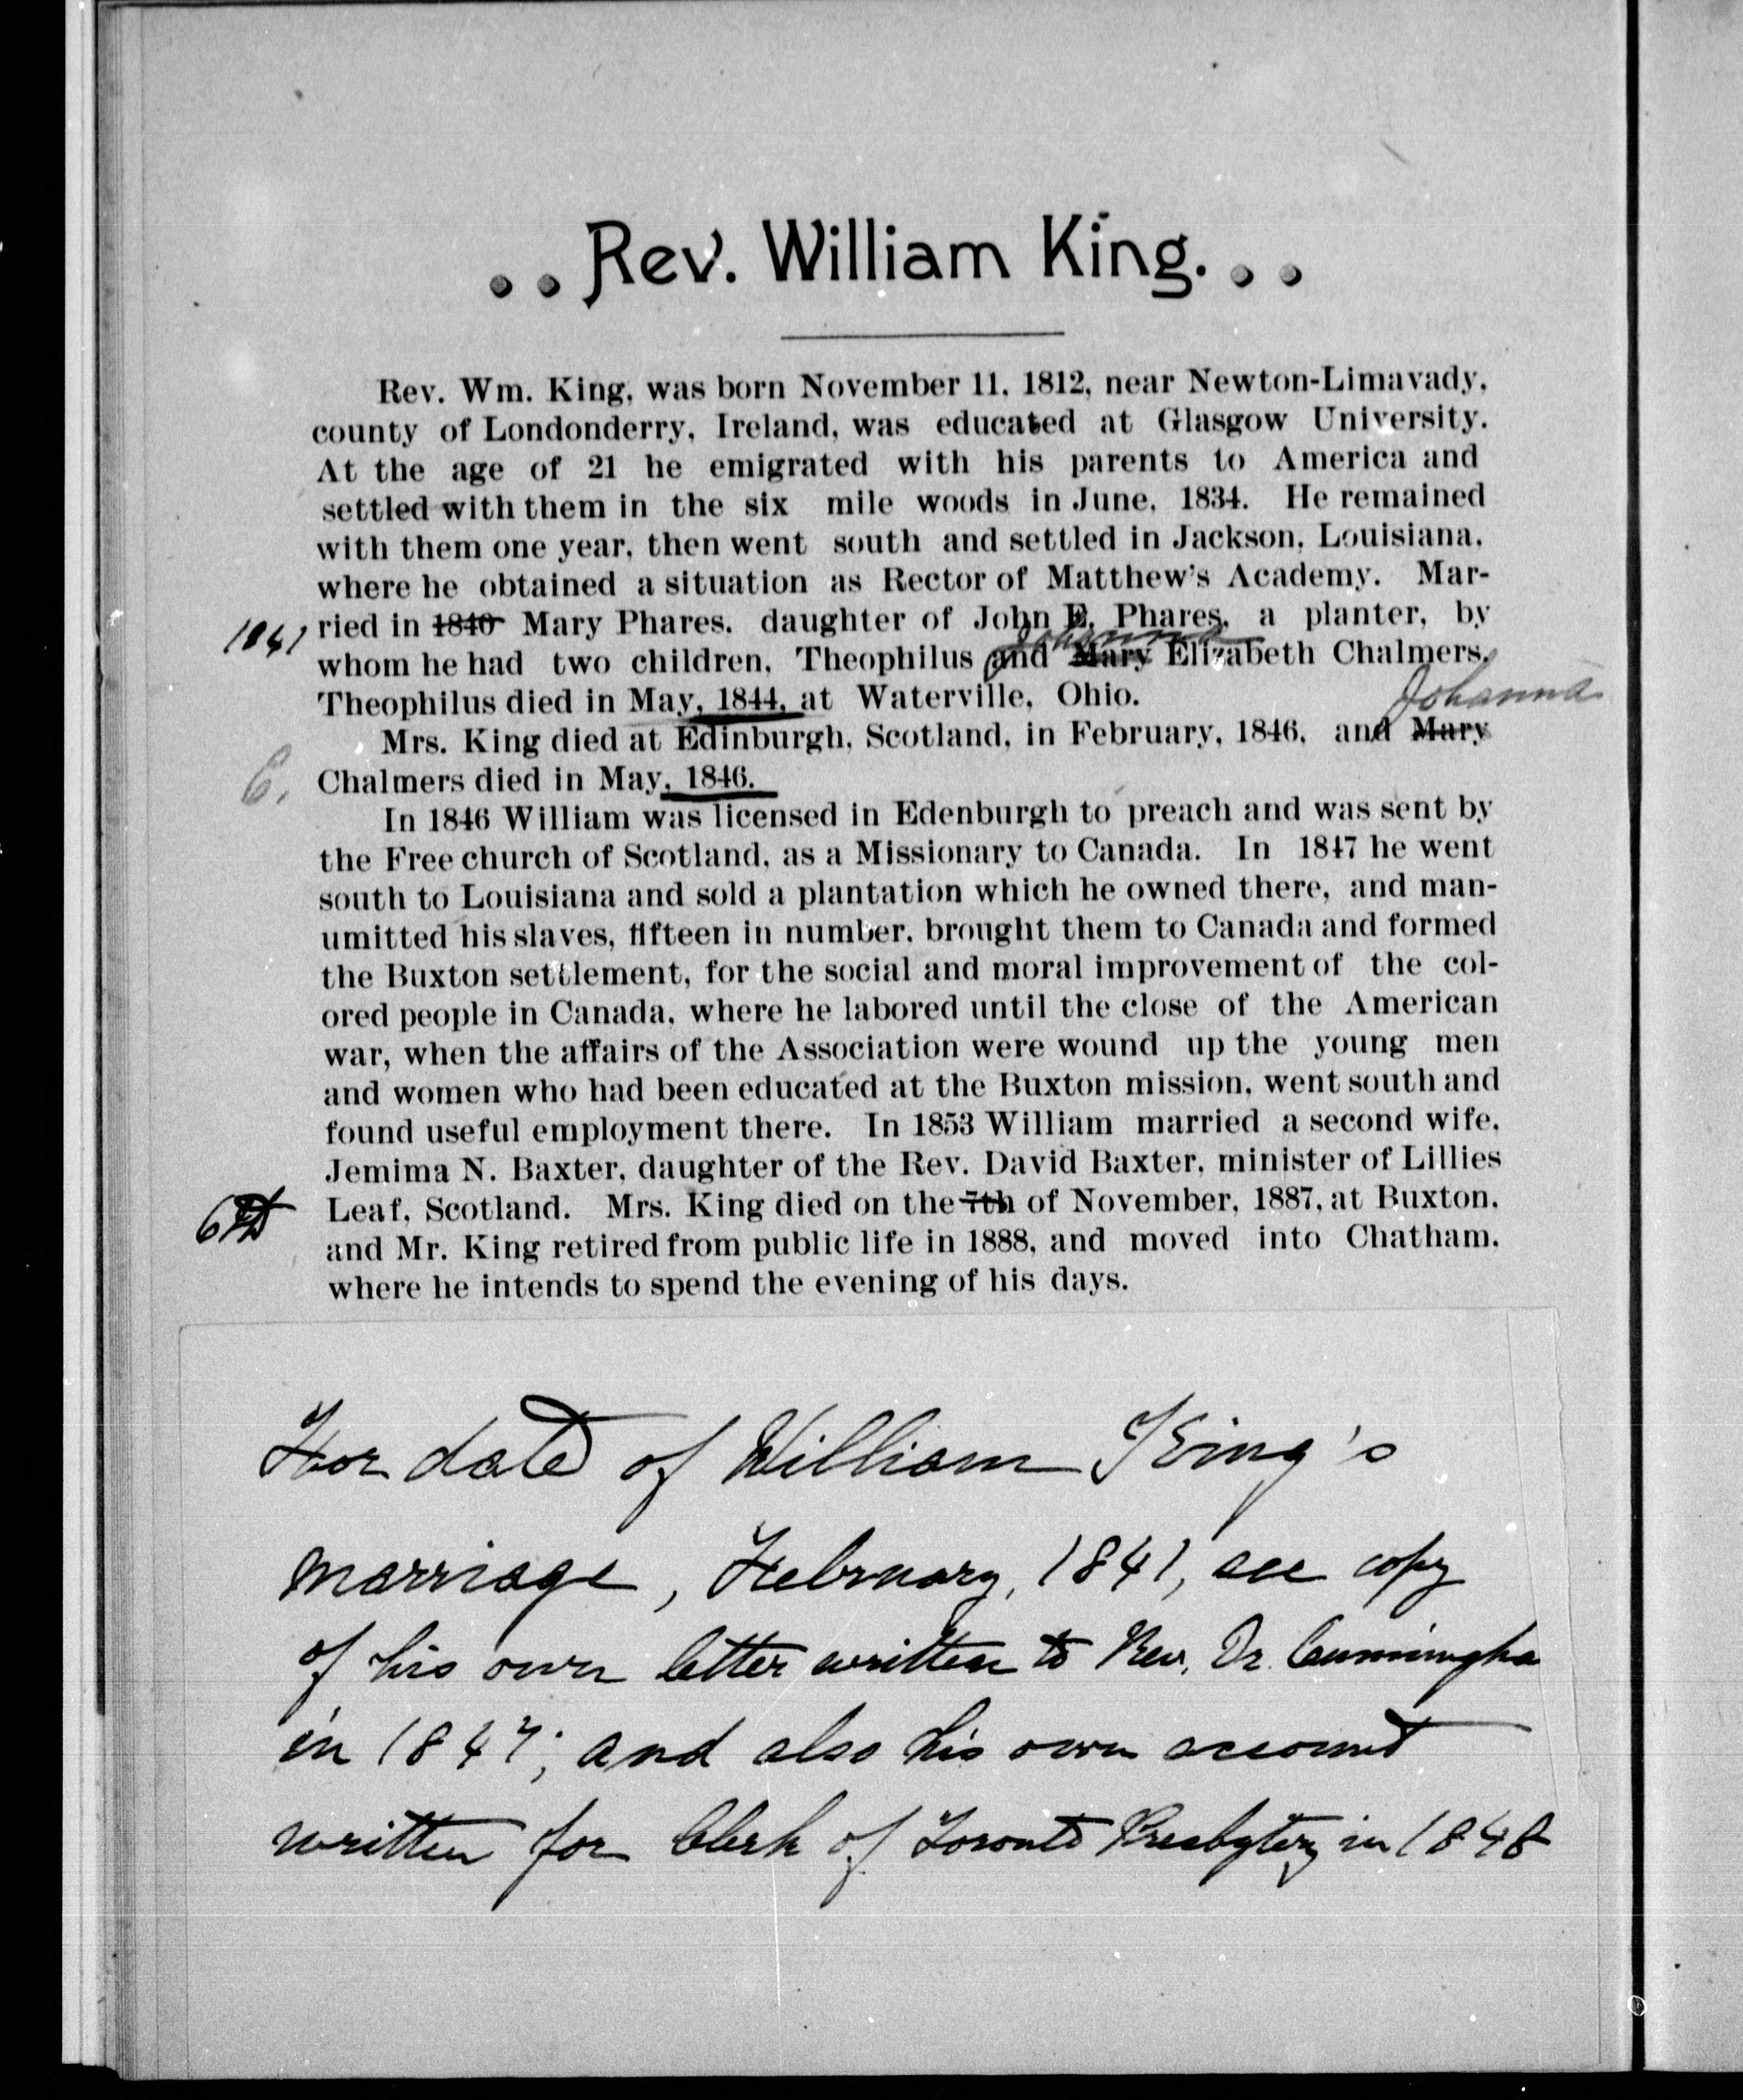 ..Rev. William King...
Rev. Wm. King, was born November 11, 1812, near Newton-Limavady,
county of Londonderry, Ireland, was educated at Glasgow University.
At the age of 21 he emigrated with his parents to America and
settled with them in the six mile woods in June, 1834. He remained
with them one year, then went south and settled in Jackson, Louisiana,
where he obtained a situation as Rector of Matthew's Academy. Mar-
1841 ried in 1840 Mary Phares, daughter of John E. Phares, a planter, by
Johanna
whom he had two children, Theophilus and Mary Elizabeth Chalmers.
Theophilus died in May, 1844, at Waterville, Ohio.
Johanna
Mrs. King died at Edinburgh, Scotland, in February, 1846, and Mary
C. Chalmers died in May, 1846.
In 1846 William was licensed in Edenburgh to preach and was sent by
the Free church of Scotland, as a Missionary to Canada. In 1847 he went
south to Louisiana and sold a plantation which he owned there, and man-
umitted his slaves, fifteen in number, brought them to Canada and formed
the Buxton settlement, for the social and moral improvement of the col-
ored people in Canada, where he labored until the close of the American
war, when the affairs of the Association were wound up the young men
and women who had been educated at the Buxton mission, went south and
found useful employment there. In 1853 William married a second wife,
Jemima N. Baxter, daughter of the Rev. David Baxter, minister of Lillies
6th Leaf, Scotland. Mrs. King died on the 7th of November, 1887, at Buxton,
and Mr. King retired from public life in 1888, and moved into Chatham,
where he intends to spend the evening of his days.
For date of William King's
marriage, February, 1841, see copy
of his own letter written to Rev. Dr. Cunningha
in 1847; and also his own account
written for Clerk of Toronto Presbytery in 1848